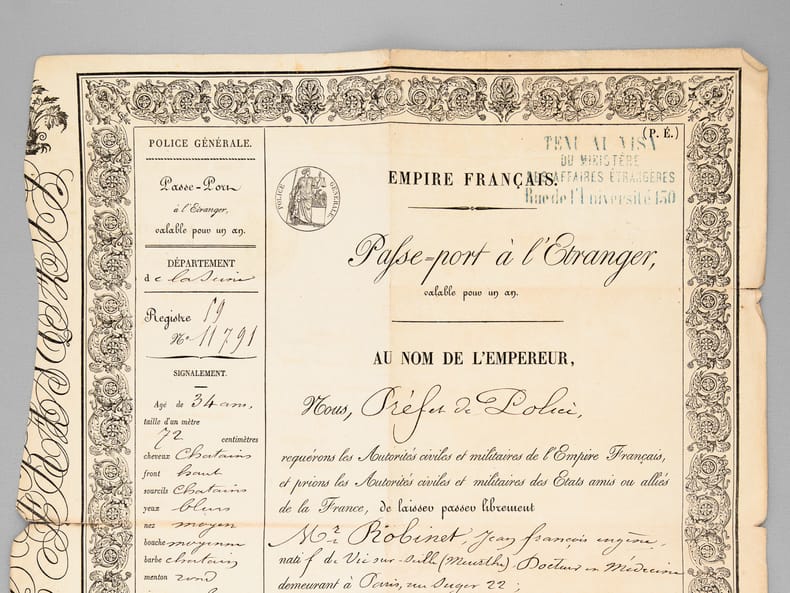 POLICE GÉNÉRALE.
Passe-Port
à l'Etranger,
valable pour un an.
DÉPARTEMENT
de la Seine
Registre 59
N° 11791
SIGNALEMENT.
Agé de 34 ans,
taille d'un mètre
72 centimètres
cheveux Chatains
front haut
sourcils Chatains
yeux bleus
nez moyen
bouche moyenne
barbe chatain
menton rond
(P. É.)
DU MINISTÈRE
DES AFFAIRES ÉTRANGÈRES
Rue de l'Université 130
POLICE GÉNÉRALE
EMPIRE FRANÇAIS.
Passe-port à l'Etranger,
valable pour un an.
AU NOM DE L'EMPEREUR,
Nous, Préfet de Police,
requérons les Autorités civiles et militaires de l'Empire Français,
et prions les Autorités civiles et militaires des Etats amis ou alliés
de la France, de laisser passer librement
Mr Robinet, Jean françois eugène,
natif de Vic sur Seille (Meurthe) Docteur en Médecine
demeurant à Paris, rue Suger 22 ;